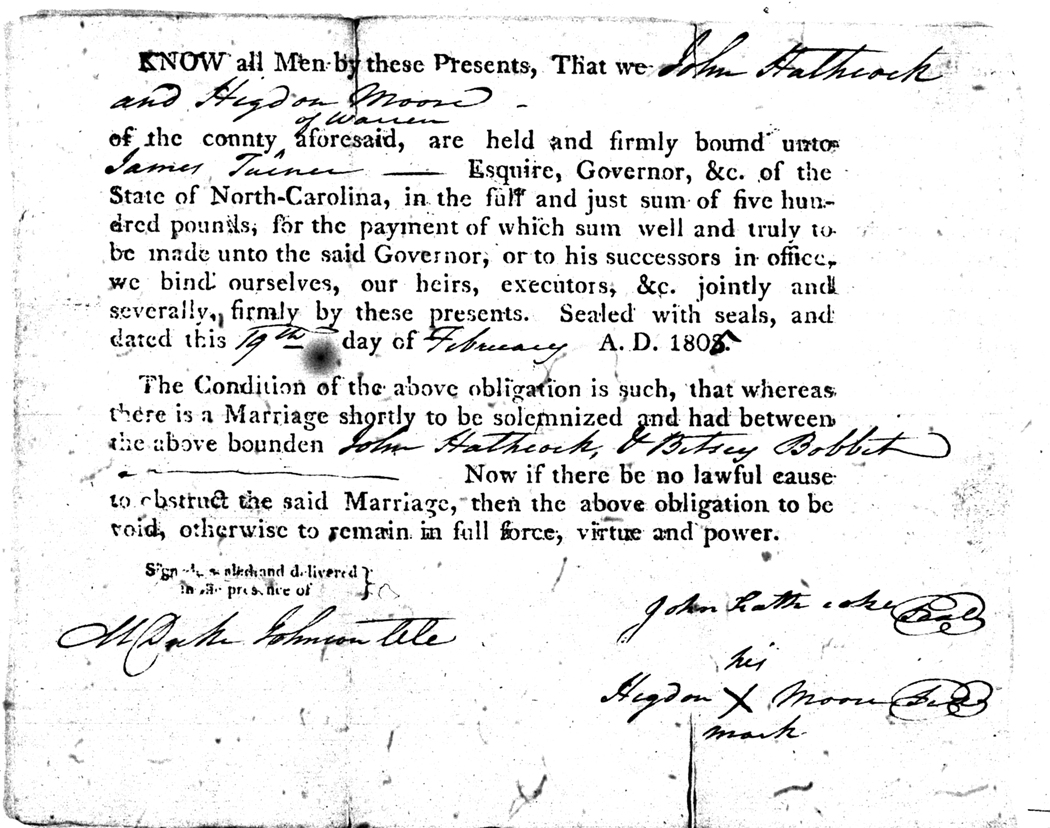 KNOW all Men by these Presents, That we John Hathcock
and Higdon Moore
of Warren
of the county aforesaid, are held and firmly bound unto
James Turner — Esquire, Governor, &c. of the
State of North-Carolina, in the full and just sum of five hun-
dred pounds, for the payment of which sum well and truly to
be made unto the said Governor, or to his successors in office,
we bind ourselves, our heirs, executors, &c. jointly and
severally, firmly by these presents. Sealed with seals, and
dated this 19th day of February A. D. 1805.
The Condition of the above obligation is such, that whereas
there is a Marriage shortly to be solemnized and had between
the above bounden John Hathcock, & Betsey Bobbit
Now if there be no lawful cause
to obstruct the said Marriage, then the above obligation to be
void, otherwise to remain in full force, virtue and power.
Signed, sealed and delivered }
in the presence of }
John Hathcocke Seal
M Duke Johnson
his
Higdon X Moore Seal
mark